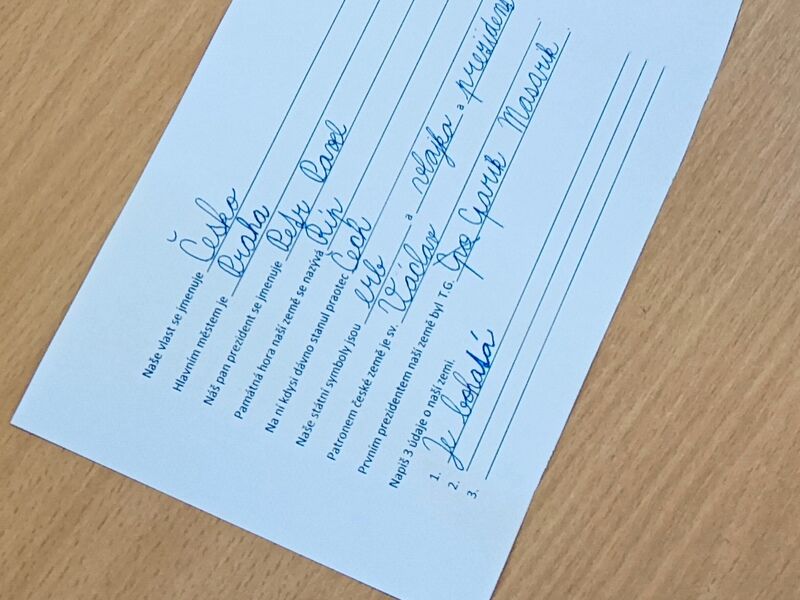 Naše vlast se jmenuje Česko
Hlavním městem je Praha
Náš pan prezident se jmenuje Petr Pavel
Památná hora naší země se nazývá Říp
Na ni kdysi dávno stanul praotec Čech
Naše státní symboly jsou erb a vlajka a prezidens
Patronem české země je sv. Václav
Prvním prezidentem naší země by T.G. Garik Masarik
Napiš 3 údaje o naší zemi.
1. Je bohatá
2.
3.